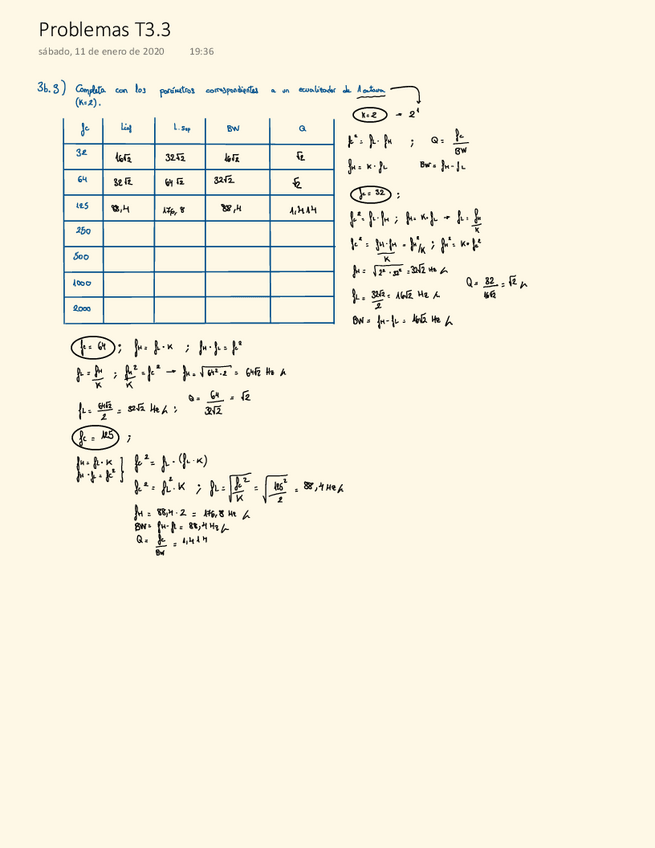 Problemas T3.3
sábado, 11 de enero de 2020 19:36
3b.3) Completa con los parámetros correspondientes a un ecualizador de 1 octava
(K=2).
fc Linf L.sup BW Q
32 16√2 32√2 16√2 √2
64 32√2 64√2 32√2 √2
125 88,4 176,8 88,4 1,414
250
500
1000
2000
K=2 → 2¹
fc² = fL · fH ; Q = fc/BW
fH = K · fL BW = fH - fL
fc = 32 ;
fc² = fL · fH ; fH = K · fL → fL = fH/K
fc² = fH · fH/K = fH²/K ; fH² = K · fc²
fH = √(2² · 32²) = 32√2 Hz
fL = 32√2/2 = 16√2 Hz Q = 32/16√2 = √2
BW = fH - fL = 16√2 Hz
fc = 64 ; fH = fL · K ; fH · fL = fc²
fL = fH/K ; fH²/K = fc² → fH = √(64² · 2) = 64√2 Hz
fL = 64√2/2 = 32√2 Hz ; Q = 64/32√2 = √2
fc = 125 ;
fH = fL · K } fc² = fL · (fL · K)
fH · fL = fc²
fc² = fL² · K ; fL = √(fc²/K) = √(125²/2) = 88,4 Hz
fH = 88,4 · 2 = 176,8 Hz
BW = fH - fL = 88,4 Hz
Q = fc/BW = 1,414